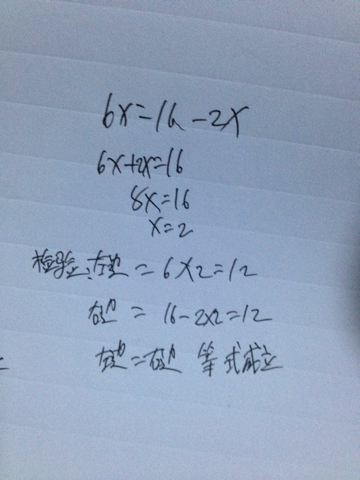 6x=16-2x
6x+2x=16
8x=16
x=2
检验:左边=6×2=12
右边=16-2×2=12
左边=右边 等式成立